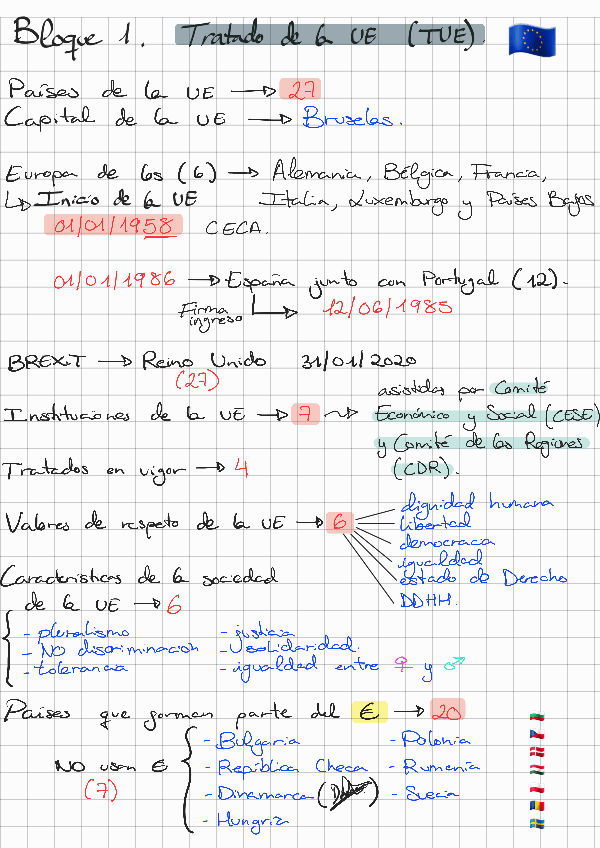 Bloque 1. Tratado de la UE (TUE).
Países de la UE → 27
Capital de la UE → Bruselas.
Europa de los (6) → Alemania, Bélgica, Francia,
↳ Inicio de la UE Italia, Luxemburgo y Países Bajos
01/01/1958 CECA.
01/01/1986 → España junto con Portugal (12).
Firma ingreso → 12/06/1985
BREXIT → Reino Unido 31/01/2020
(27)
Instituciones de la UE → 7 → asistidas por Comité
Económico y Social (CESE)
y Comité de las Regiones
(CDR).
Tratados en vigor → 4
Valores de respeto de la UE → 6
dignidad humana
libertad
democracia
igualdad
estado de Derecho
DDHH.
Características de la sociedad
de la UE → 6
- pluralismo
- NO discriminación
- tolerancia
- justicia
- solidaridad.
- igualdad entre ♀ y ♂
Países que forman parte del € → 20
NO usan €
(7)
- Bulgaria
- República Checa
- Dinamarca
- Hungría
- Polonia
- Rumanía
- Suecia